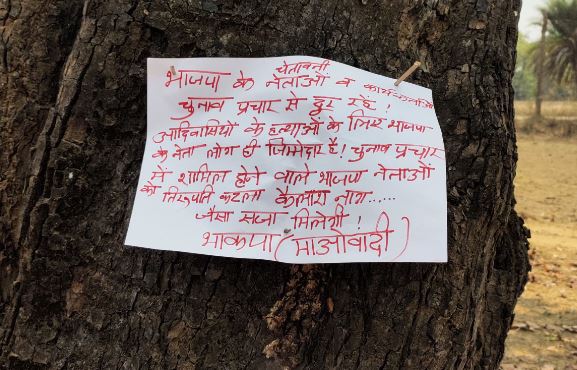 चेतावनी
भाजपा के नेताओं व कार्यकर्ताओं
चुनाव प्रचार से दुर रहें !
आदिवासियों के हत्याओं के लिए भाजपा
के नेता लोग ही जिम्मेदार है! चुनाव प्रचार
में शामिल होने वाले भाजपा नेताओं
को तिरुपति कटला कैलाश नाग.....
जैसा सजा मिलेगी !
भाकपा (माओवादी)